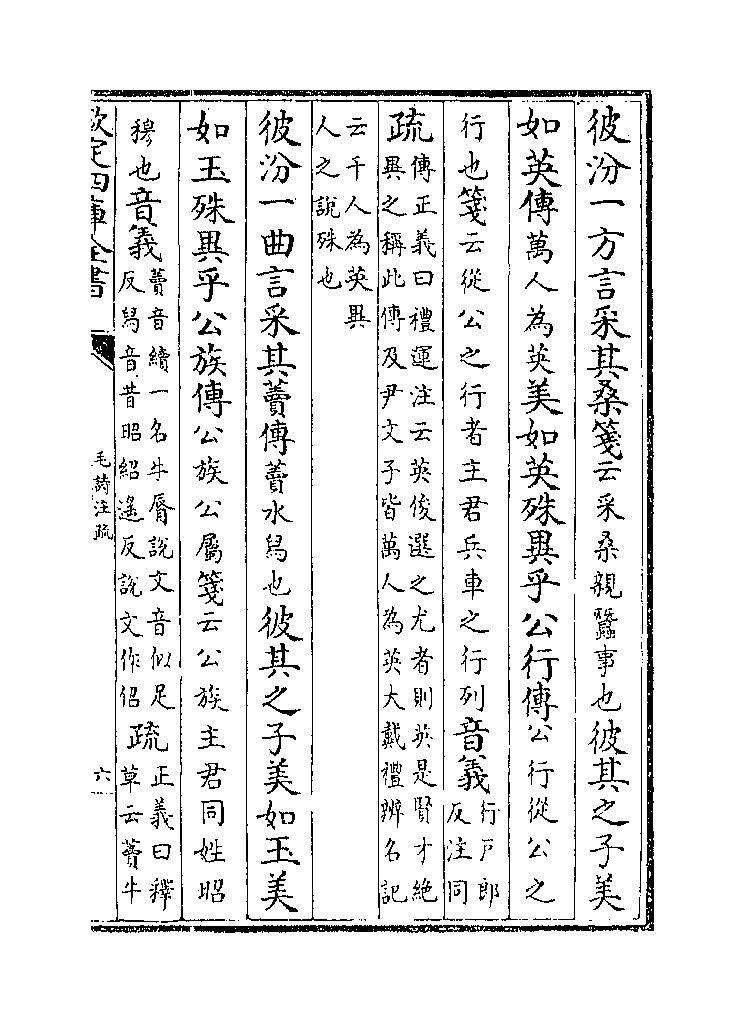 彼汾一方言采其桑箋云采桑親蠶事也彼其之子美
如英傳萬人為英美如英殊異乎公行傳公行從公之
行也箋云從公之行者主君兵車之行列音義行戸郎
反注同
疏傳正義曰禮運注云英俊選之尤者則英是賢才絶
異之稱此傳及尹文子皆萬人為英大戴禮辨名記
云千人為英異
人之說殊也
彼汾一曲言采其藚傳藚水舄也彼其之子美如玉美
如玉殊異乎公族傳公族公屬箋云公族主君同姓昭
穆也音義藚音續一名牛脣說文音似足
反舄音昔昭紹遙反說文作佋
疏正義曰釋
草云藚牛
欽定四庫全書
毛詩注疏
六